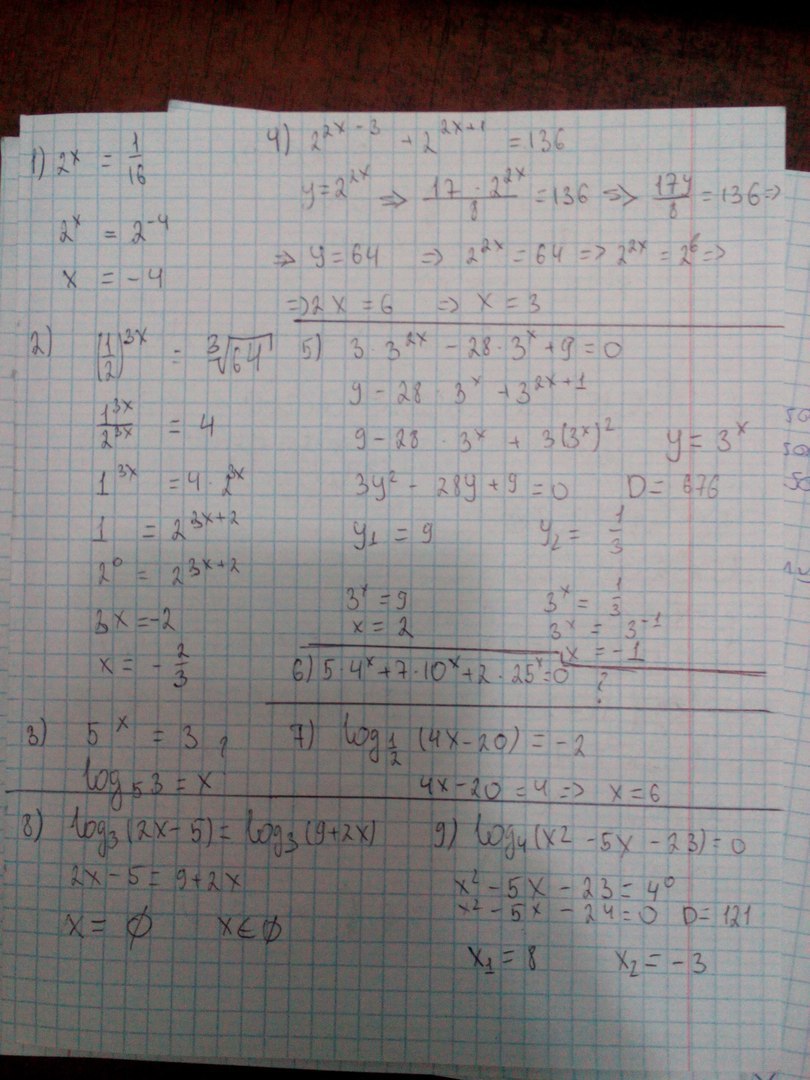 1) 2^x = 1/16
2^x = 2^-4
x = -4
2) (1/2)^3x = ∛64
1^3x/2^3x = 4
1^3x = 4·2^3x
1 = 2^3x+2
2^0 = 2^3x+2
3x = -2
x = -2/3
3) 5^x = 3 ?
log_5 3 = x
4) 2^2x-3 + 2^2x+1 = 136
y = 2^2x => 17·2^2x/8 = 136 => 17y/8 = 136 =>
=> y = 64 => 2^2x = 64 => 2^2x = 2^6 =>
=> 2x = 6 => x = 3
5) 3·3^2x - 28·3^x + 9 = 0
9 - 28·3^x + 3^2x+1
9 - 28·3^x + 3(3^x)^2 y = 3^x
3y^2 - 28y + 9 = 0 D = 676
y_1 = 9 y_2 = 1/3
3^x = 9 3^x = 1/3
x = 2 3^x = 3^-1
x = -1
6) 5·4^x + 7·10^x + 2·25^x = 0 ?
7) log_1/2 (4x-20) = -2
4x-20 = 4 => x = 6
8) log_3 (2x-5) = log_3 (9+2x)
2x-5 = 9+2x
x = ∅ x ∈ ∅
9) log_4 (x^2 -5x -23) = 0
x^2 - 5x - 23 = 4^0
x^2 - 5x - 24 = 0 D = 121
x_1 = 8 x_2 = -3